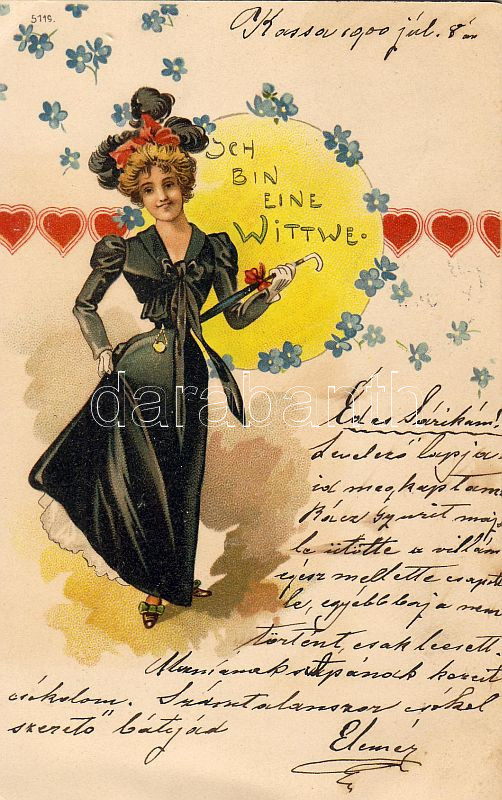 5119.
Kassa 1900 júl. 8án
ICH
BIN
EINE
WITTWE.
darabanth
Édes Sárikám!
Levelező lapja
id megkaptam
Rácz Gyurit maj
le ütötte a villám
egész mellette csapott
le, egyébb baja nem
történt, csak leesett.
Mamának Apának kezeit
csókolom. Számtalanszor csókol
szerető bátyád
Elemér